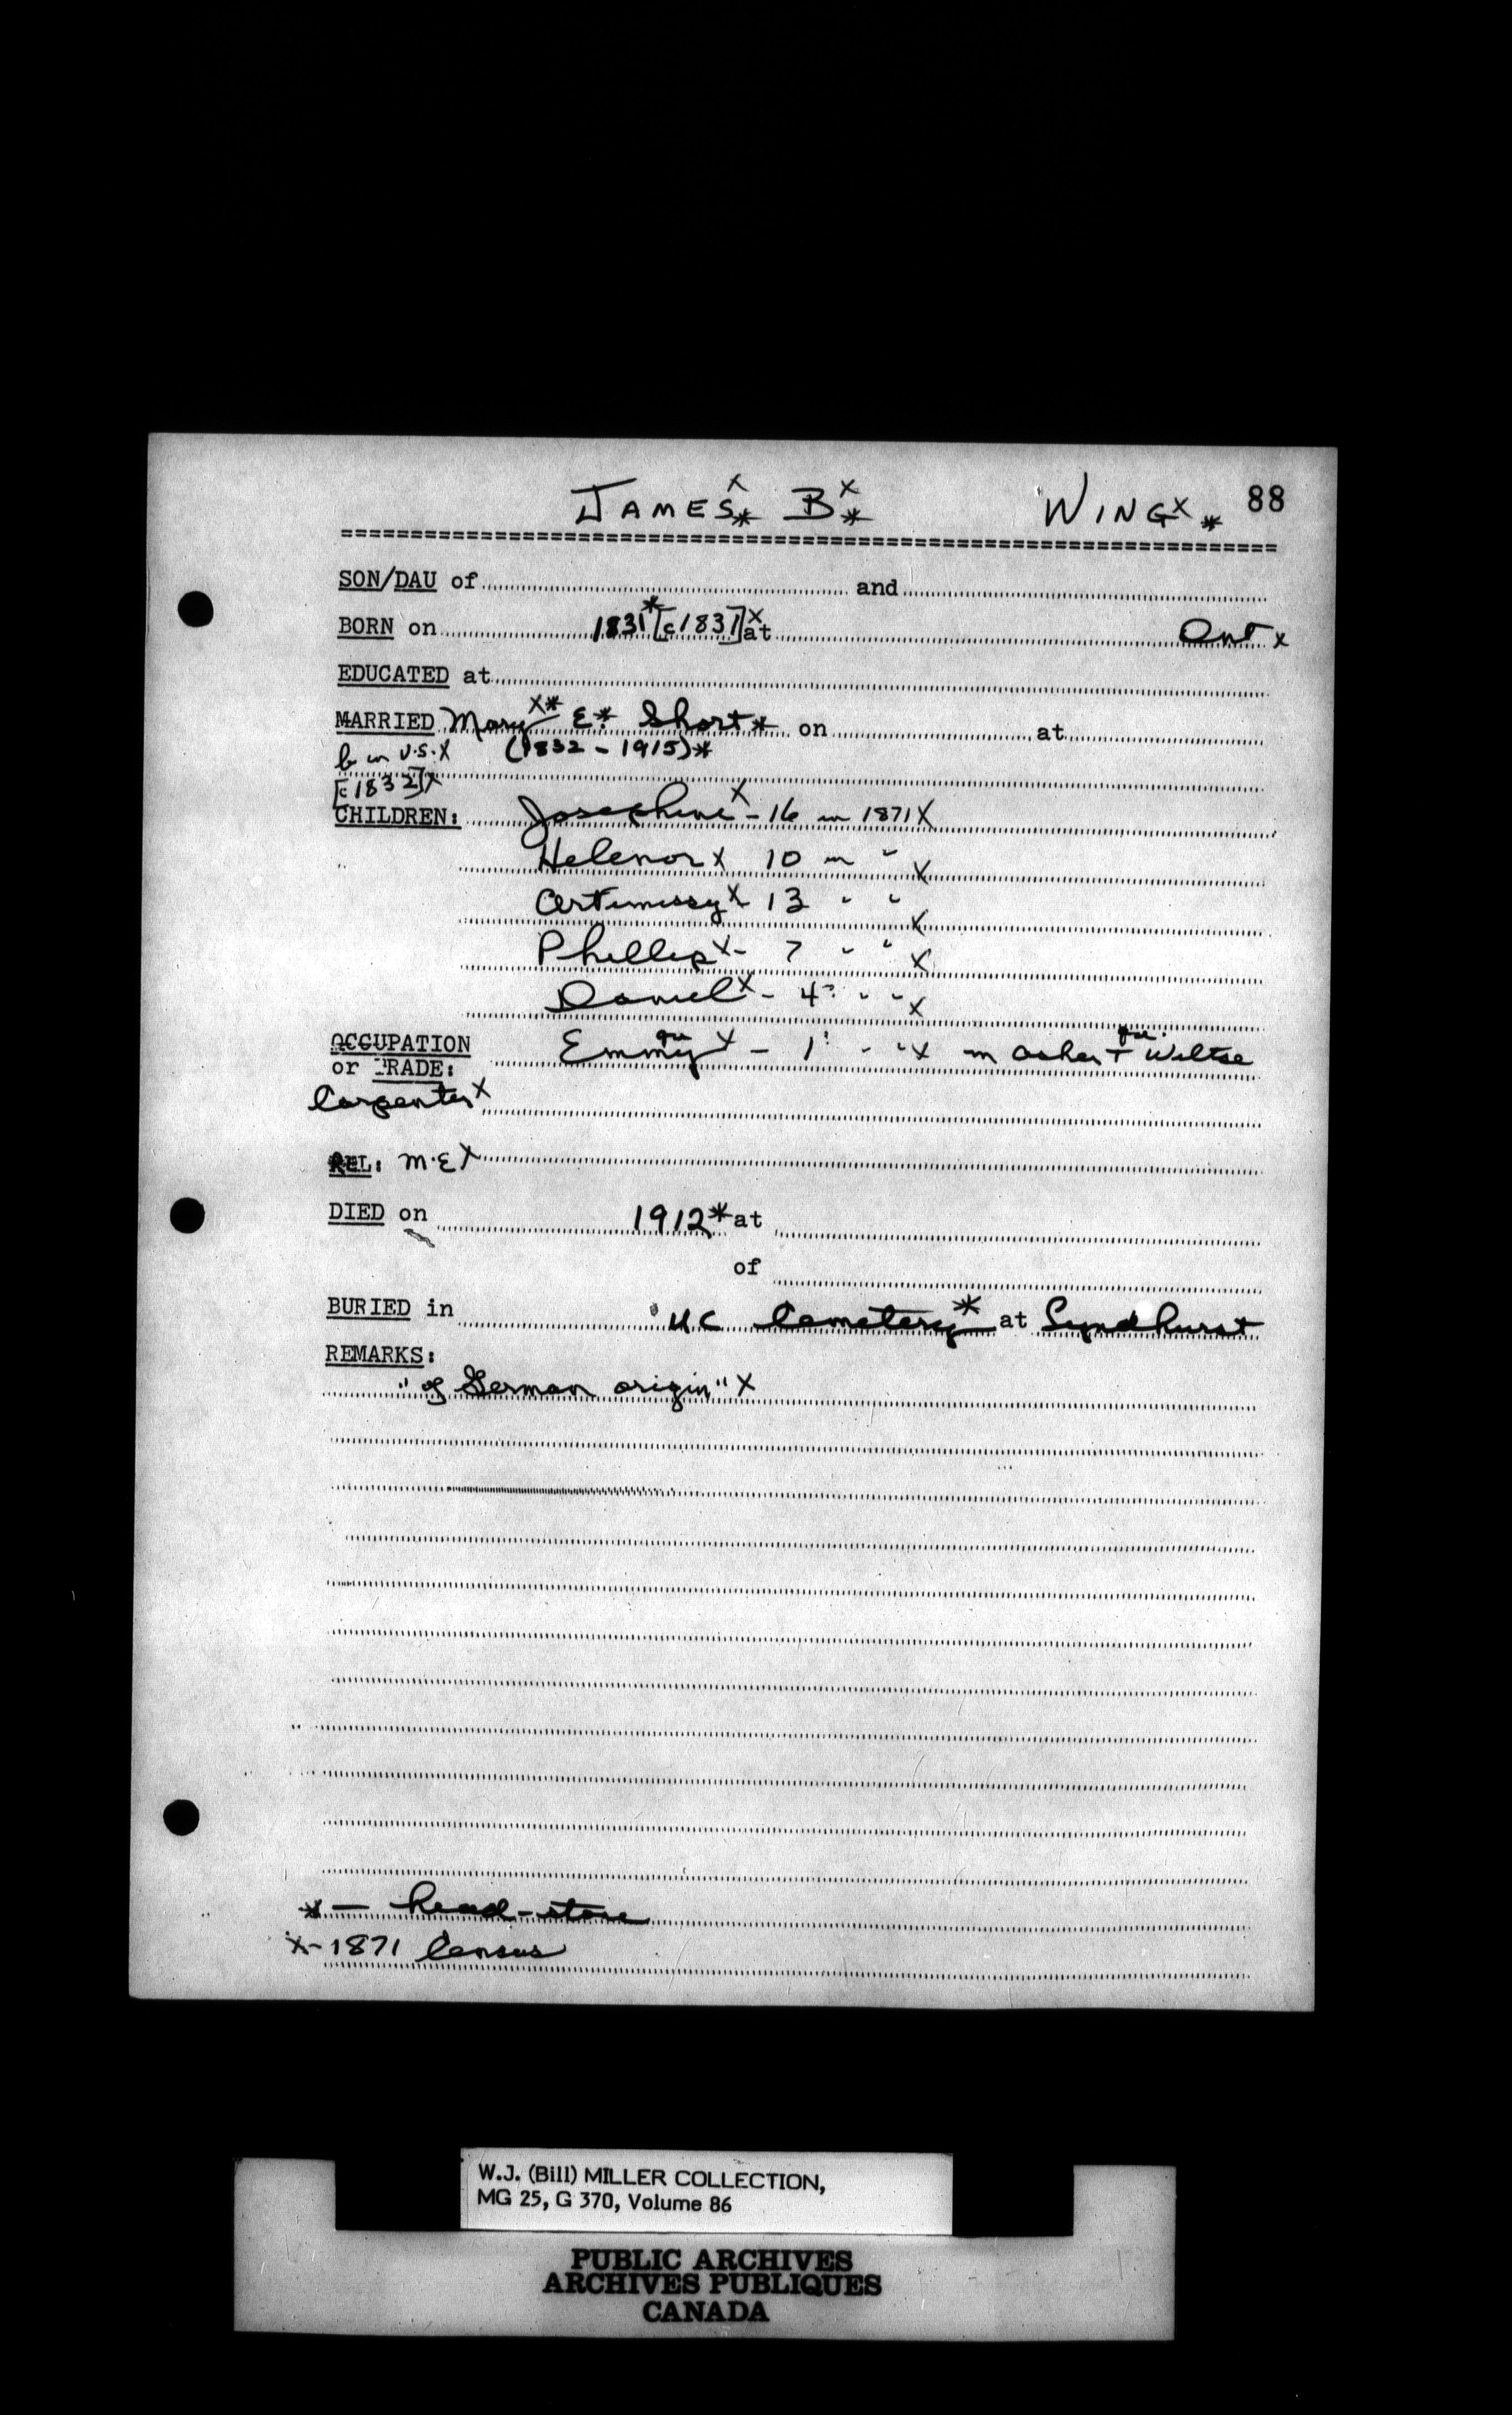 JAMES x * B x * WING x * 88
SON/DAU of and
BORN on 1831* [c 1831] x at Ont x
EDUCATED at
MARRIED Mary x* E* Short* on at
b in U.S. x (1832 - 1915)*
[c 1832] x
CHILDREN: Josephine x - 16 in 1871 x
Helenor x 10 in " x
Artemissy x 13 " " x
Phillip x - 7 " " x
Daniel x - 4 " " x
OCCUPATION Emmy que x - 1 " " x m Asher + que. Wiltse
or TRADE:
Carpenter x
REL: M.E x
DIED on 1912* at
of
BURIED in UC Cemetery* at Lyndhurst
REMARKS:
"of German origin" x
* — head-stone
x - 1871 Census
W.J. (Bill) MILLER COLLECTION,
MG 25, G 370, Volume 86
PUBLIC ARCHIVES
ARCHIVES PUBLIQUES
CANADA